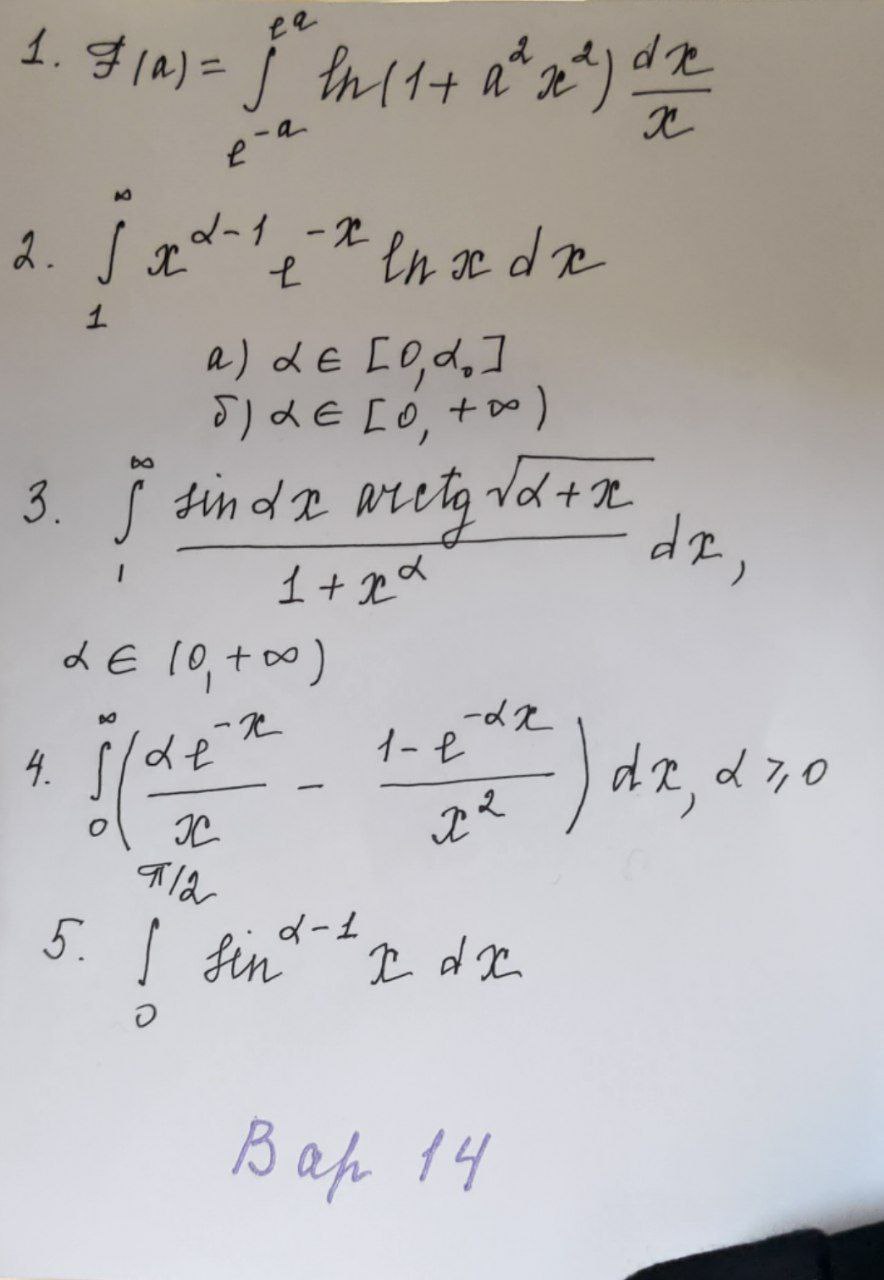 1. F(a) = ∫_{e^{-a}}^{e^{a}} ln(1 + a²x²) dx/x
2. ∫_{1}^{∞} x^{α-1} e^{-x} ln x dx
а) α ∈ [0, α₀]
б) α ∈ [0, +∞)
3. ∫_{1}^{∞} (sin αx arctg √(α+x))/(1 + x^α) dx,
α ∈ (0, +∞)
4. ∫_{0}^{∞} (αe^{-x}/x - (1-e^{-αx})/x²) dx, α ⩾ 0
5. ∫_{0}^{π/2} sin^{α-1} x dx
Вар 14